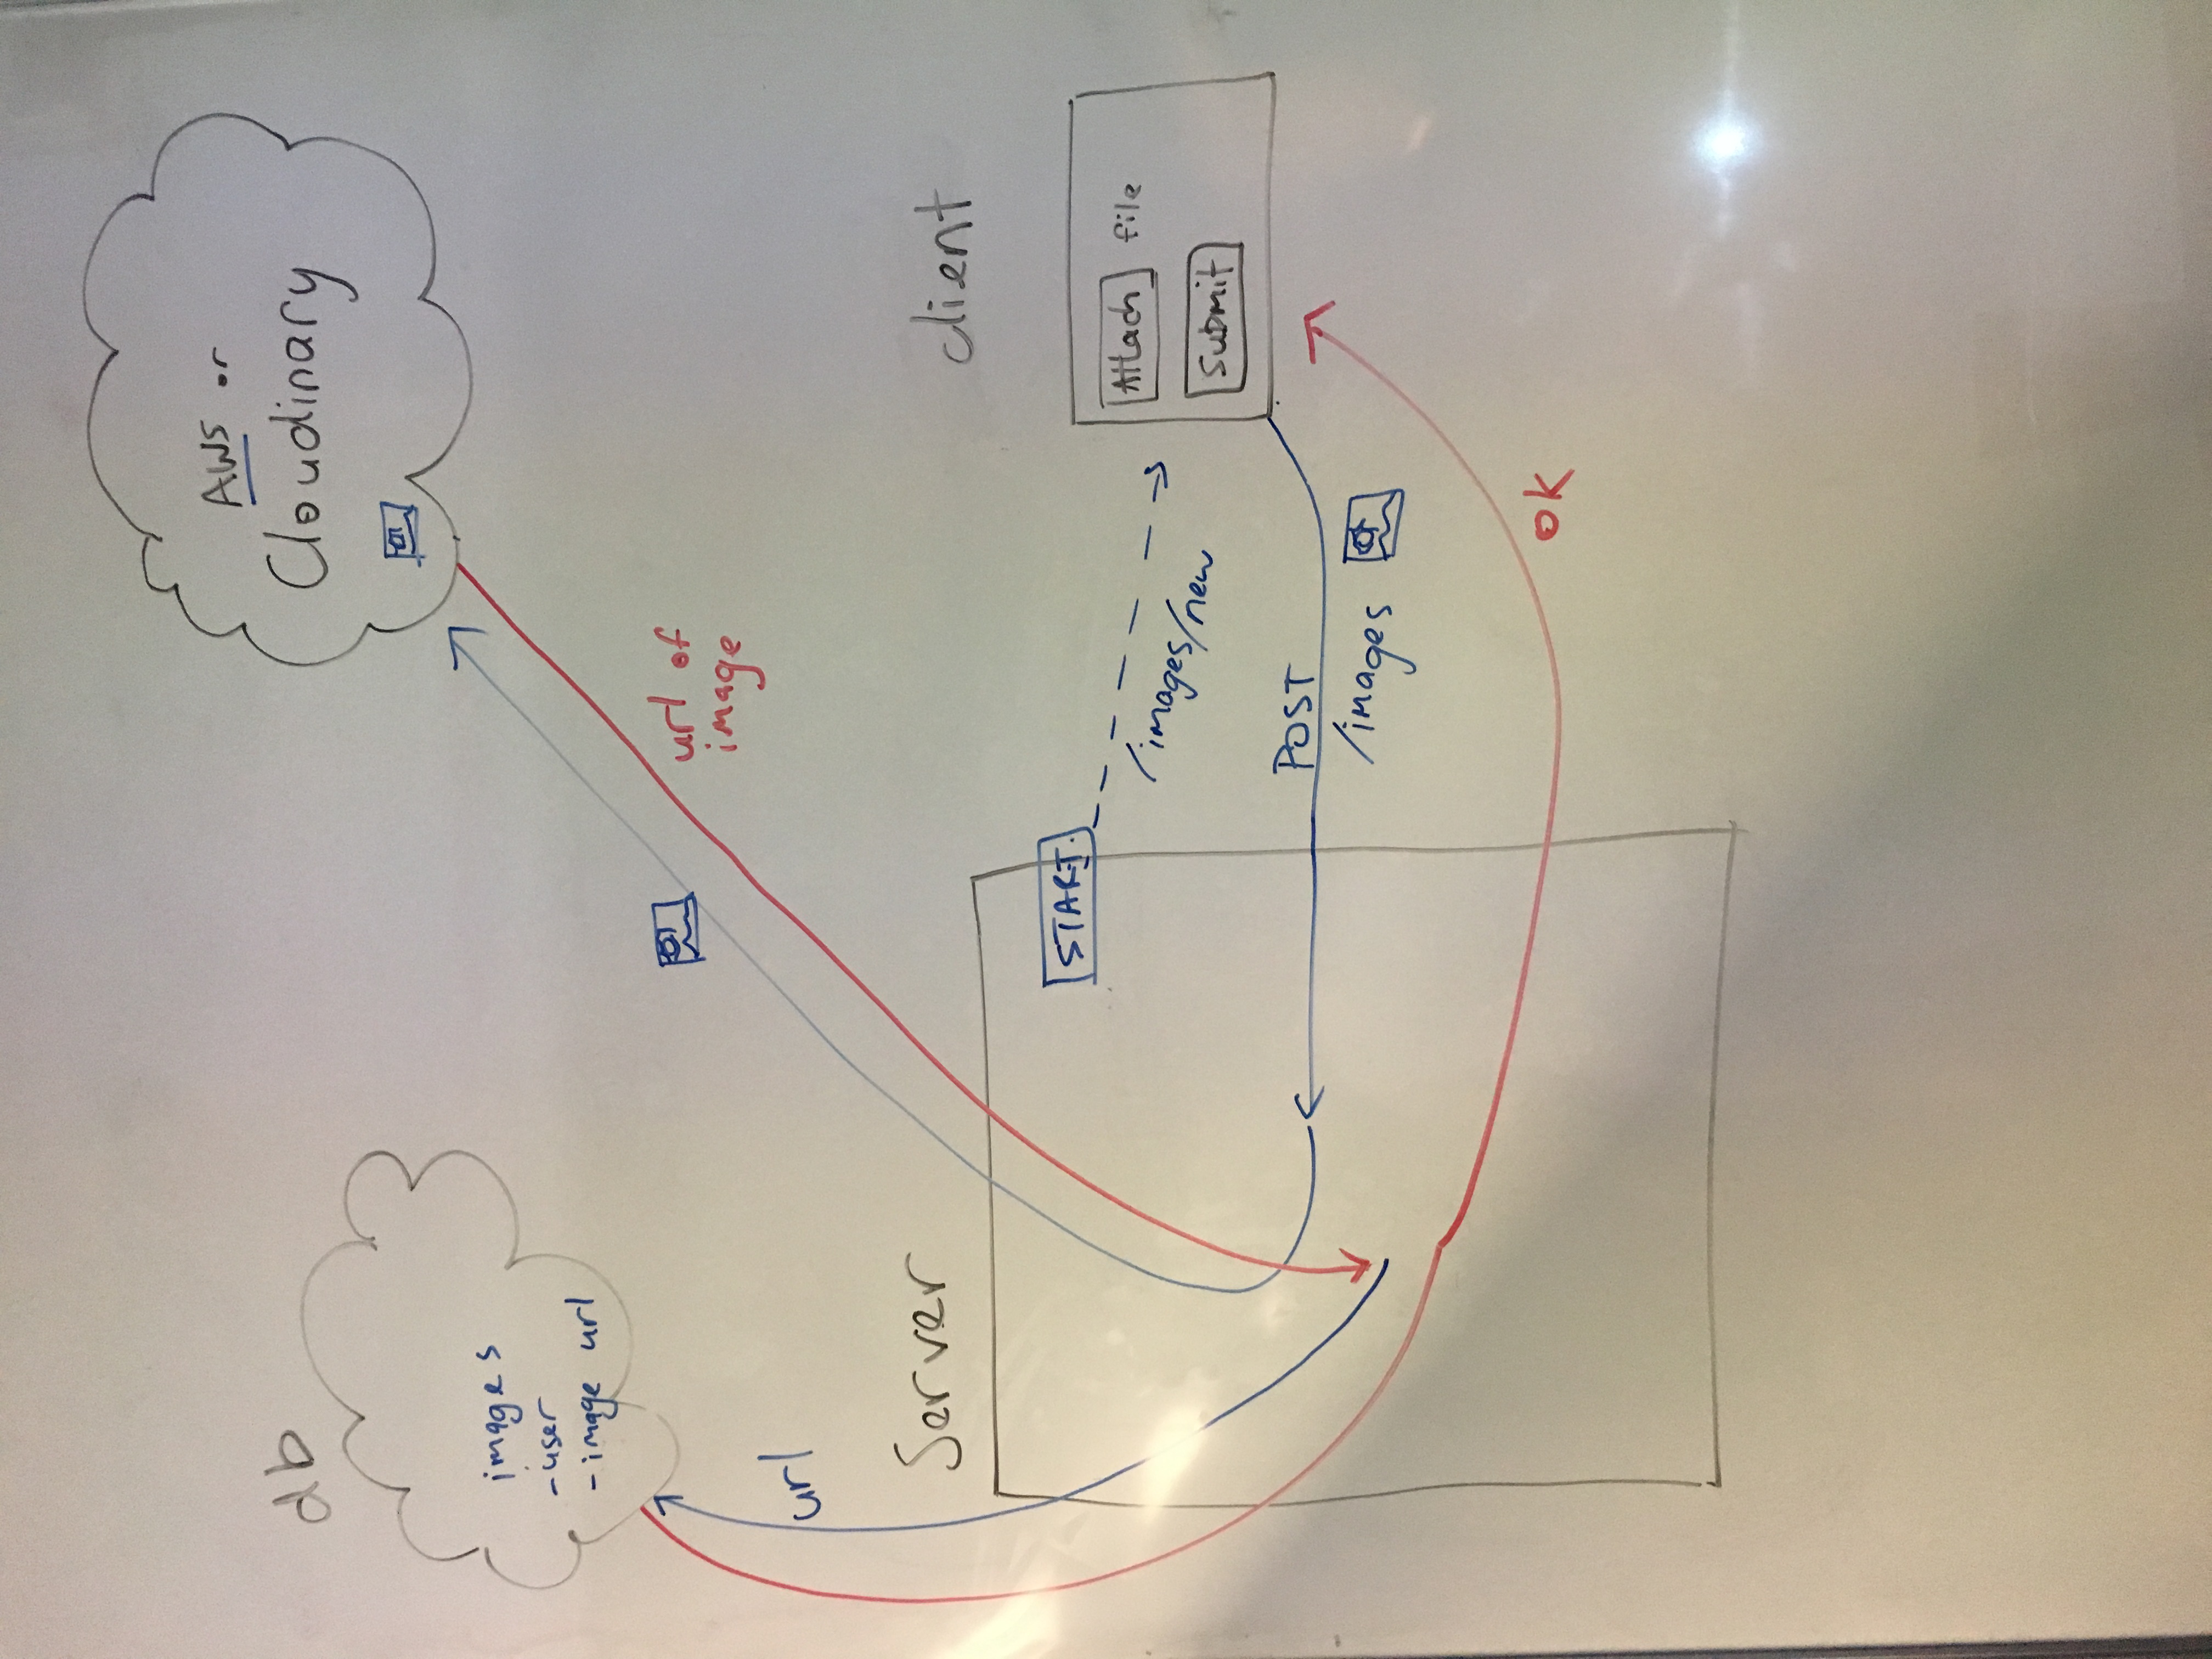 AWS or
Cloudinary
db
images
- user
- image url
url of
image
url
Server
client
START
/images/new
Attach file
Submit
POST
/images
ok